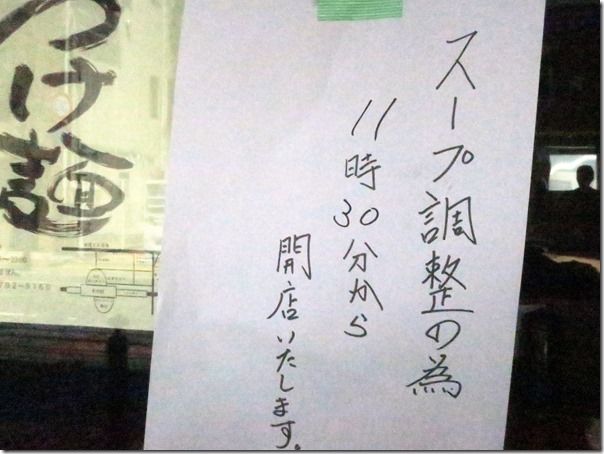 スープ調整の為
11時30分から
開店いたします。
つけ麺